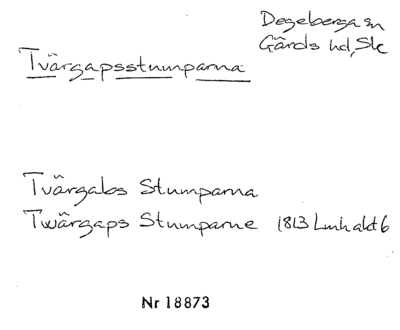 Degeberga sn
Gärds hd, Sk
Tvärgapsstumparna
Tvärgabs Stumparna
Twärgaps Stumparne 1813 Lmh akt 6
Nr 18873